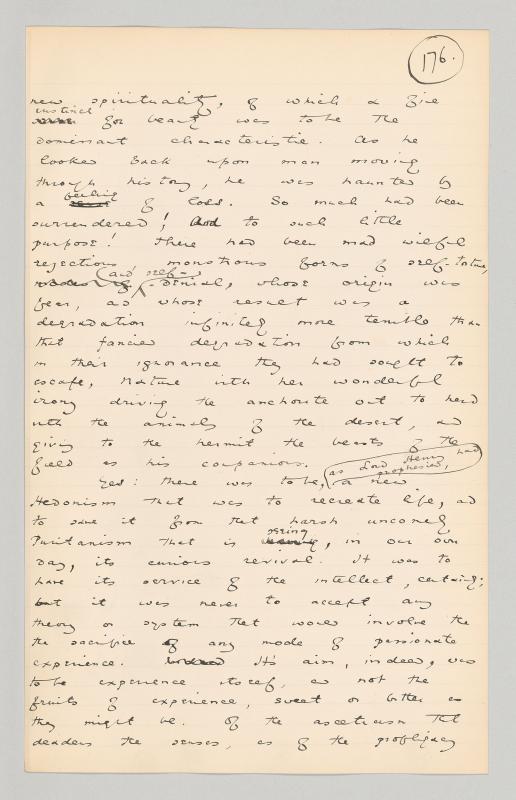 176.
new spirituality, of which a fine
instinct
for beauty was to be the
dominant characteristic. As he
looked back upon man moving
through history, he was haunted by
feeling
a sense of loss. So much had been
surrendered! And to such little
purpose! There had been mad wilful
rejections monstrous forms of self-torture,
and self-
modes of denial, whose origin was
fear, and whose result was a
degradation infinitely more terrible than
that fancied degradation from which
in their ignorance they had sought to
escape, Nature with her wonderful
irony driving the anchorite out to herd
with the animals of the desert, and
giving to the hermit the beasts of the
field as his companions.
as Lord Henry had
prophesied,
Yes: there was to be, a new
Hedonism that was to recreate life, and
to save it from that harsh uncomely
Puritanism that is
seeing
having, in our own
day, its curious revival. It was to
have its service of the intellect, certainly;
but it was never to accept any
theory or system that would involve the
the sacrifice of any mode of passionate
experience. Its aim, indeed, was
to be experience itself, and not the
fruits of experience, sweet or bitter as
they might be. Of the asceticism that
deadens the senses, as of the profligacy